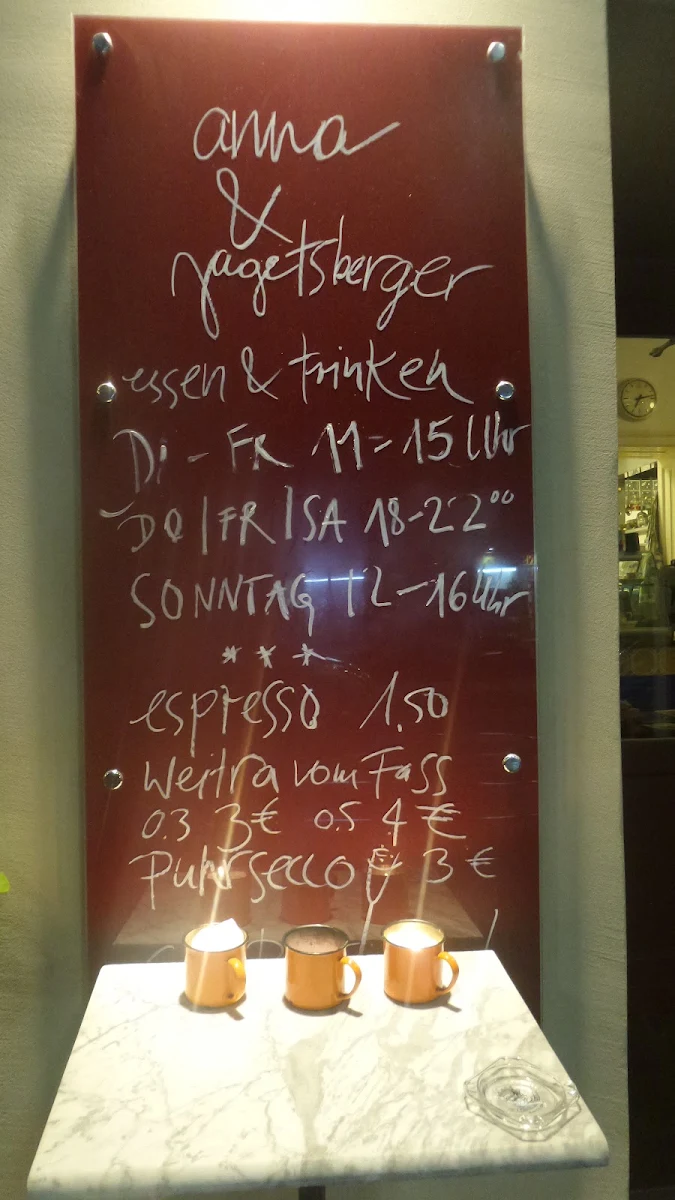 anna
&
jagetsberger
essen & trinken
Di - FR 11 - 15 Uhr
DO | FR | SA 18 - 22⁰⁰
SONNTAG 12 - 16 Uhr
* * *
espresso 1,50
Weitra vom Fass
0.3 3€ 0.5 4€
secco 3€